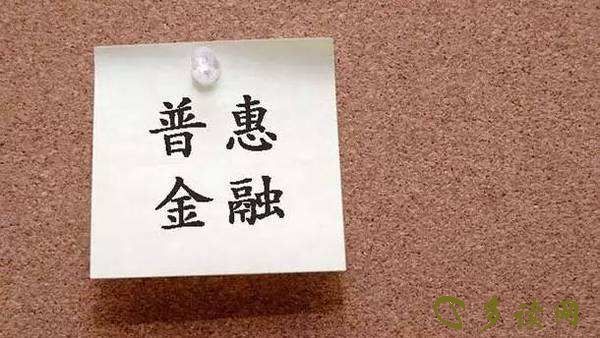 普惠
金融
多读网